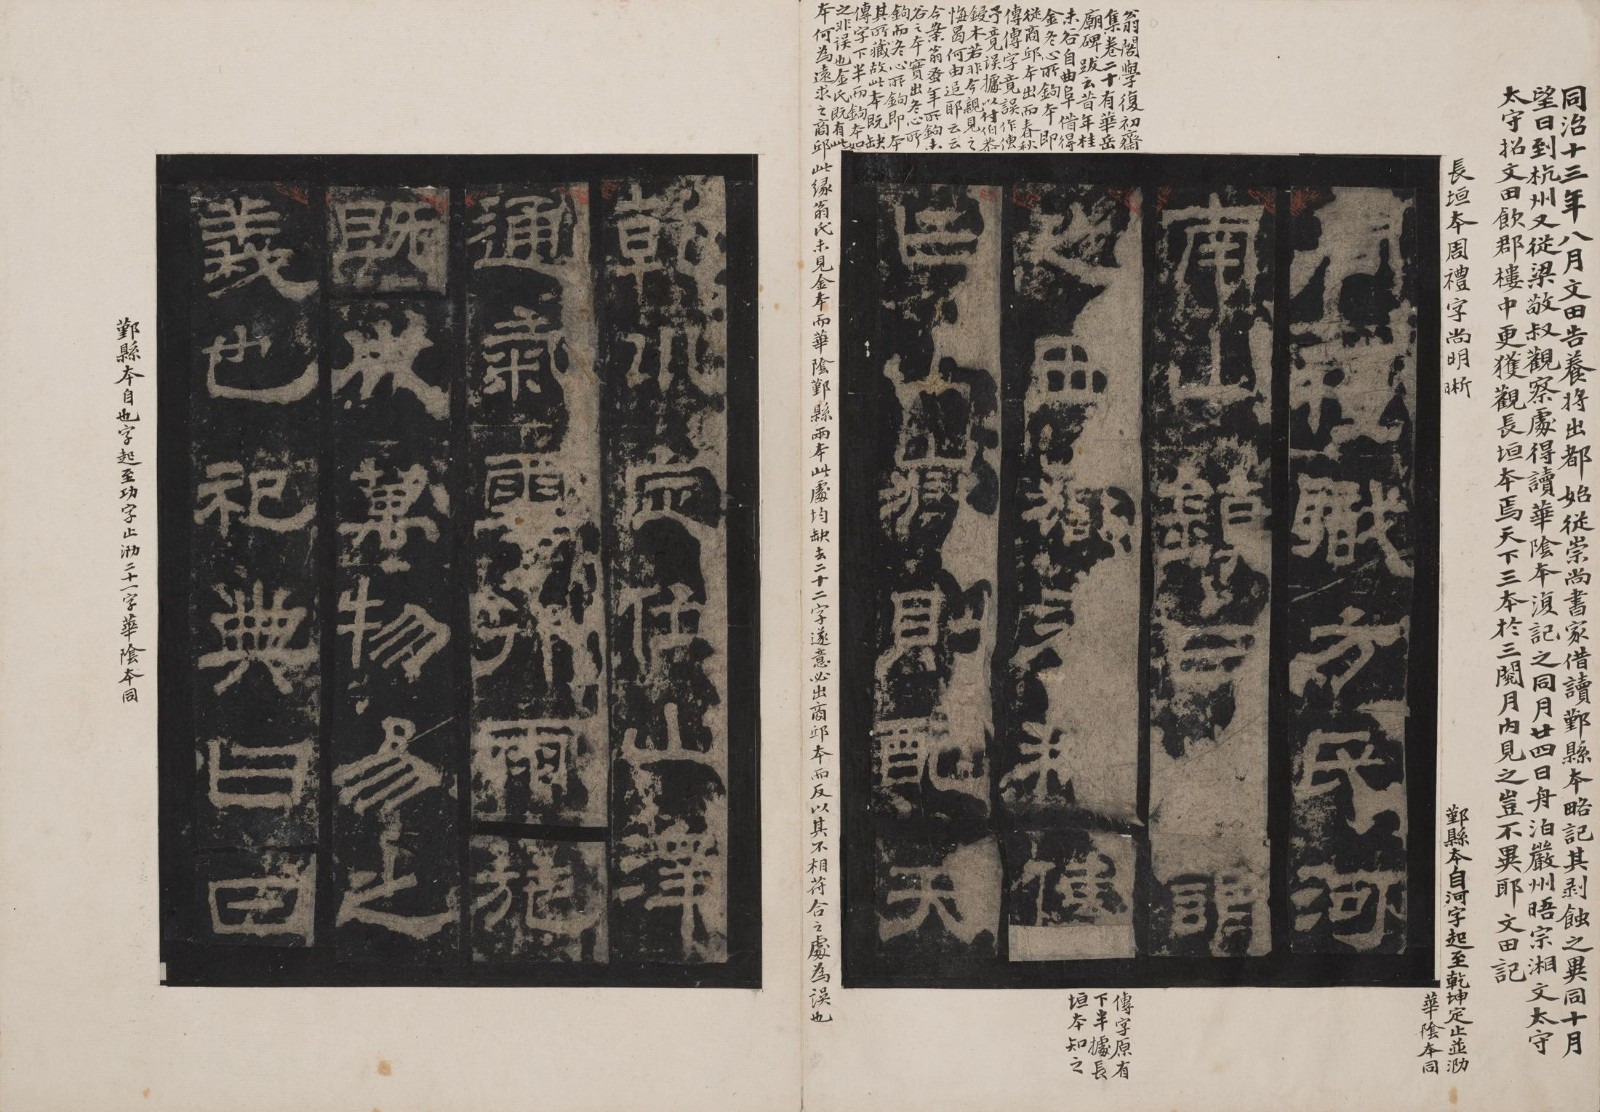 同治十三年八月文田告養將出都始從崇尚書家借讀鄞縣本略記其剥蝕之異同十月
望日到杭州又從梁敬叔觀察處得讀華陰本復記之同月廿四日舟泊嚴州晤宗湘文太守
太守招文田飲郡樓中更獲觀長垣本焉天下三本於三閱月內見之豈不異耶文田記
長垣本周禮字尚明晰
鄞縣本自河字起至乾坤定止並泐
華陰本同
周禮職方氏河
南山鎮曰謂
之西嶽春秋傳
曰山嶽則配天
傳字原有
下半據長
垣本知之
翁閣學復初齋
集卷二十有華岳
廟碑跋云昔年桂
未谷自曲阜借得
金冬心所鉤本即
從商邱本出而春秋
傳傳字竟誤作傅
予竟誤據以付伯恭
鋟木若非今親見之
悔曷何由追耶云云
今案翁蚤年所鉤未
谷之本實出冬心所
鉤而冬心所鉤即本
其所藏故此本既缺
傳字下半而鉤本如
之非誤也金氏既有此
本何為遠求之商邱此緣翁氏未見金本而華陰鄞縣兩本此處均缺去二十二字遂意必出商邱本而反以其不相符合之處為誤也
乾坤定位山澤
通氣雲行雨施
既成萬物易之
義也祀典曰日
鄞縣本自也字起至功字止泐二十一字華陰本同